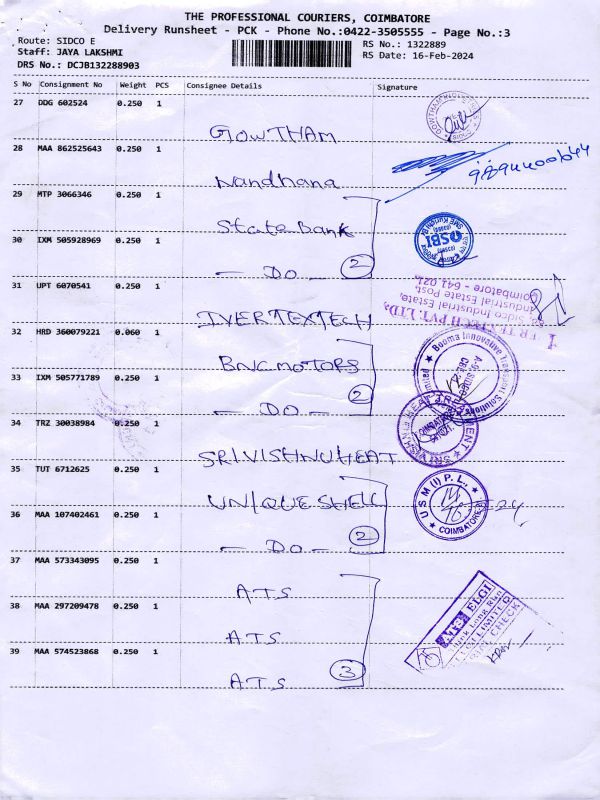 THE PROFESSIONAL COURIERS, COIMBATORE
Delivery Runsheet - PCK - Phone No.:0422-3505555 - Page No.:3
Route: SIDCO E
RS No.: 1322889
Staff: JAYA LAKSHMI
RS Date: 16-Feb-2024
DRS No.: DCJB132288903
S No Consignment No Weight PCS Consignee Details Signature
27 DDG 602524 0.250 1
GOWTHAM
28 MAA 862525643 0.250 1
Nandhana
29 MTP 3066346 0.250 1
State Bank
SBI
30 IXM 505928969 0.250 1
- DO - 2
31 UPT 6070541 0.250 1
Sidco Industrial Estate,
Industrial Estate Post,
Coimbatore - 641 021.
IVERTEXTECH
32 HRD 360079221 0.060 1
BNC MOTORS
Booma Innovative Transport Solutions
33 IXM 505771789 0.250 1
- DO - 2
34 TRZ 30038984 0.250 1
SRI VISHNU HEAT
SRI VISHNU HEAT TREATMENT
35 TUT 6712625 0.250 1
UNIQUE SHELL
U S M (I) P. L.,
COIMBATORE
36 MAA 107402461 0.250 1
- DO - 2
37 MAA 573343095 0.250 1
ATS
38 MAA 297209478 0.250 1
ATS
ELGI
39 MAA 574523868 0.250 1
ATS 3